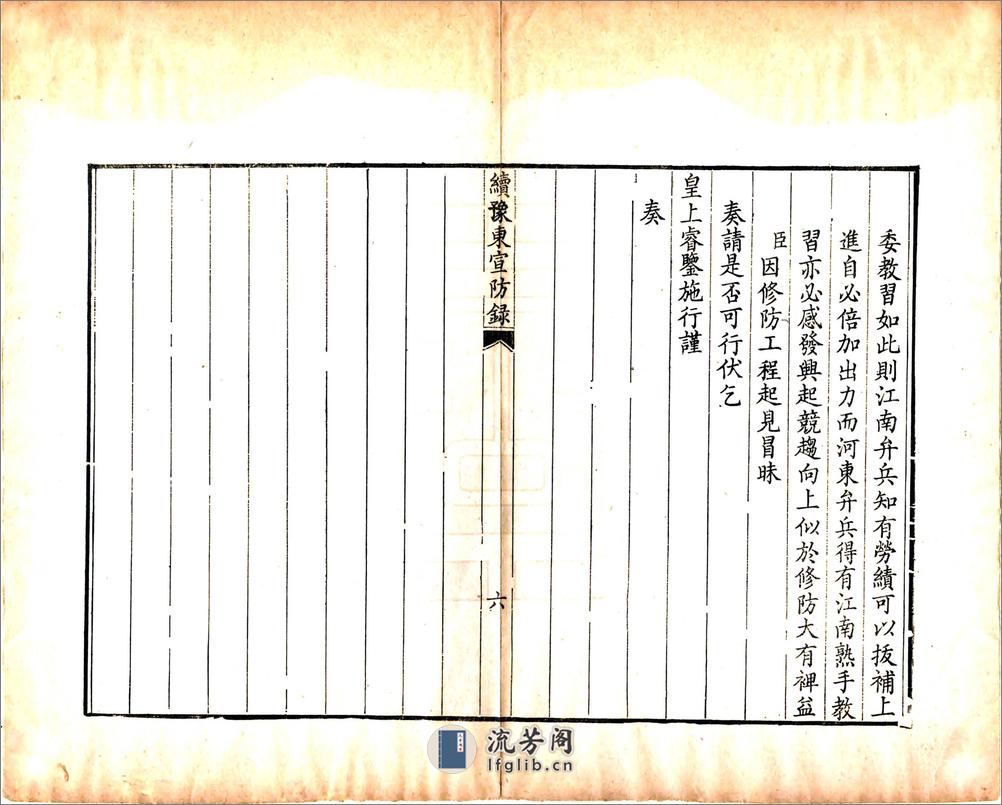 委教習如此則江南弁兵知有勞績可以拔補上
進自必倍加出力而河東弁兵得有江南熟手教
習亦必感發興起競趨向上似於修防大有裨益
臣因修防工程起見冒昧
奏請是否可行伏乞
皇上睿鑒施行謹
奏
續豫東宣防錄
六
流芳阁
lfglib.cn